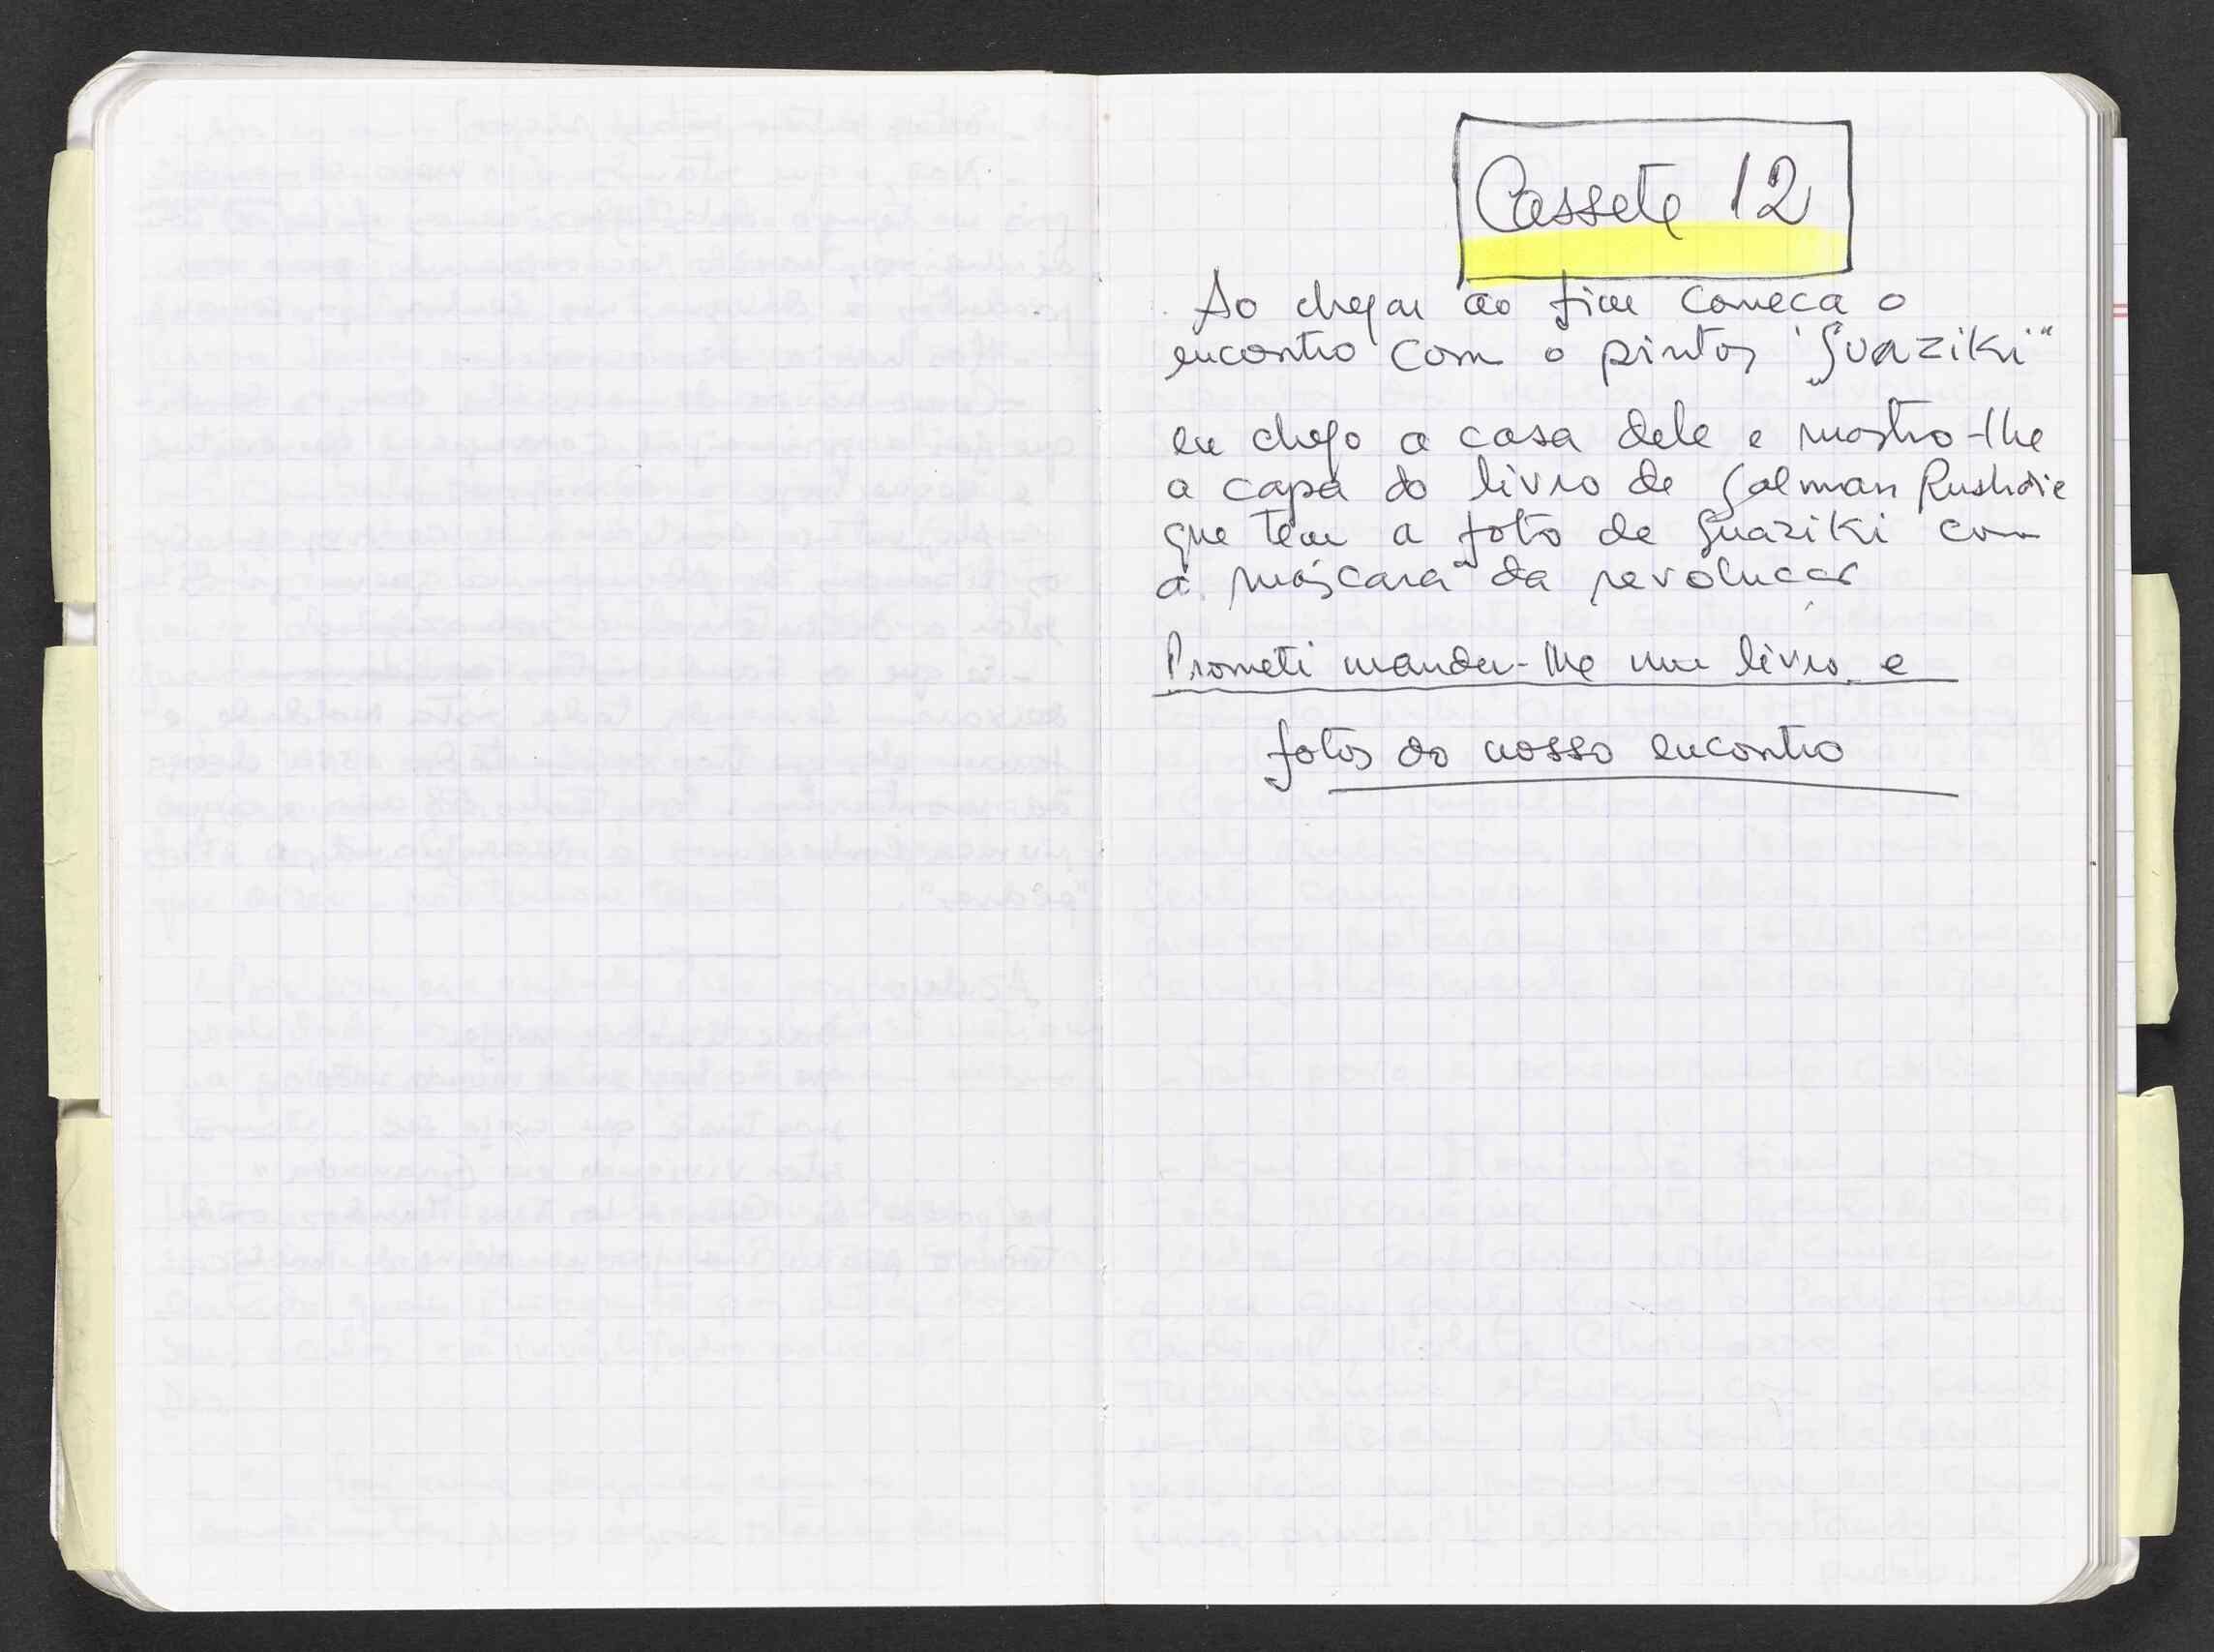 Cassete 12
Ao chegar ao fim começa o
encontro com o pintor "Guaziki"
eu chego a casa dele e mostro-lhe
a capa do livro de Salman Rushdie
que tem a foto de Guaziki com
a máscara da revolucar
Prometi mandar-lhe um livro e
fotos do nosso encontro